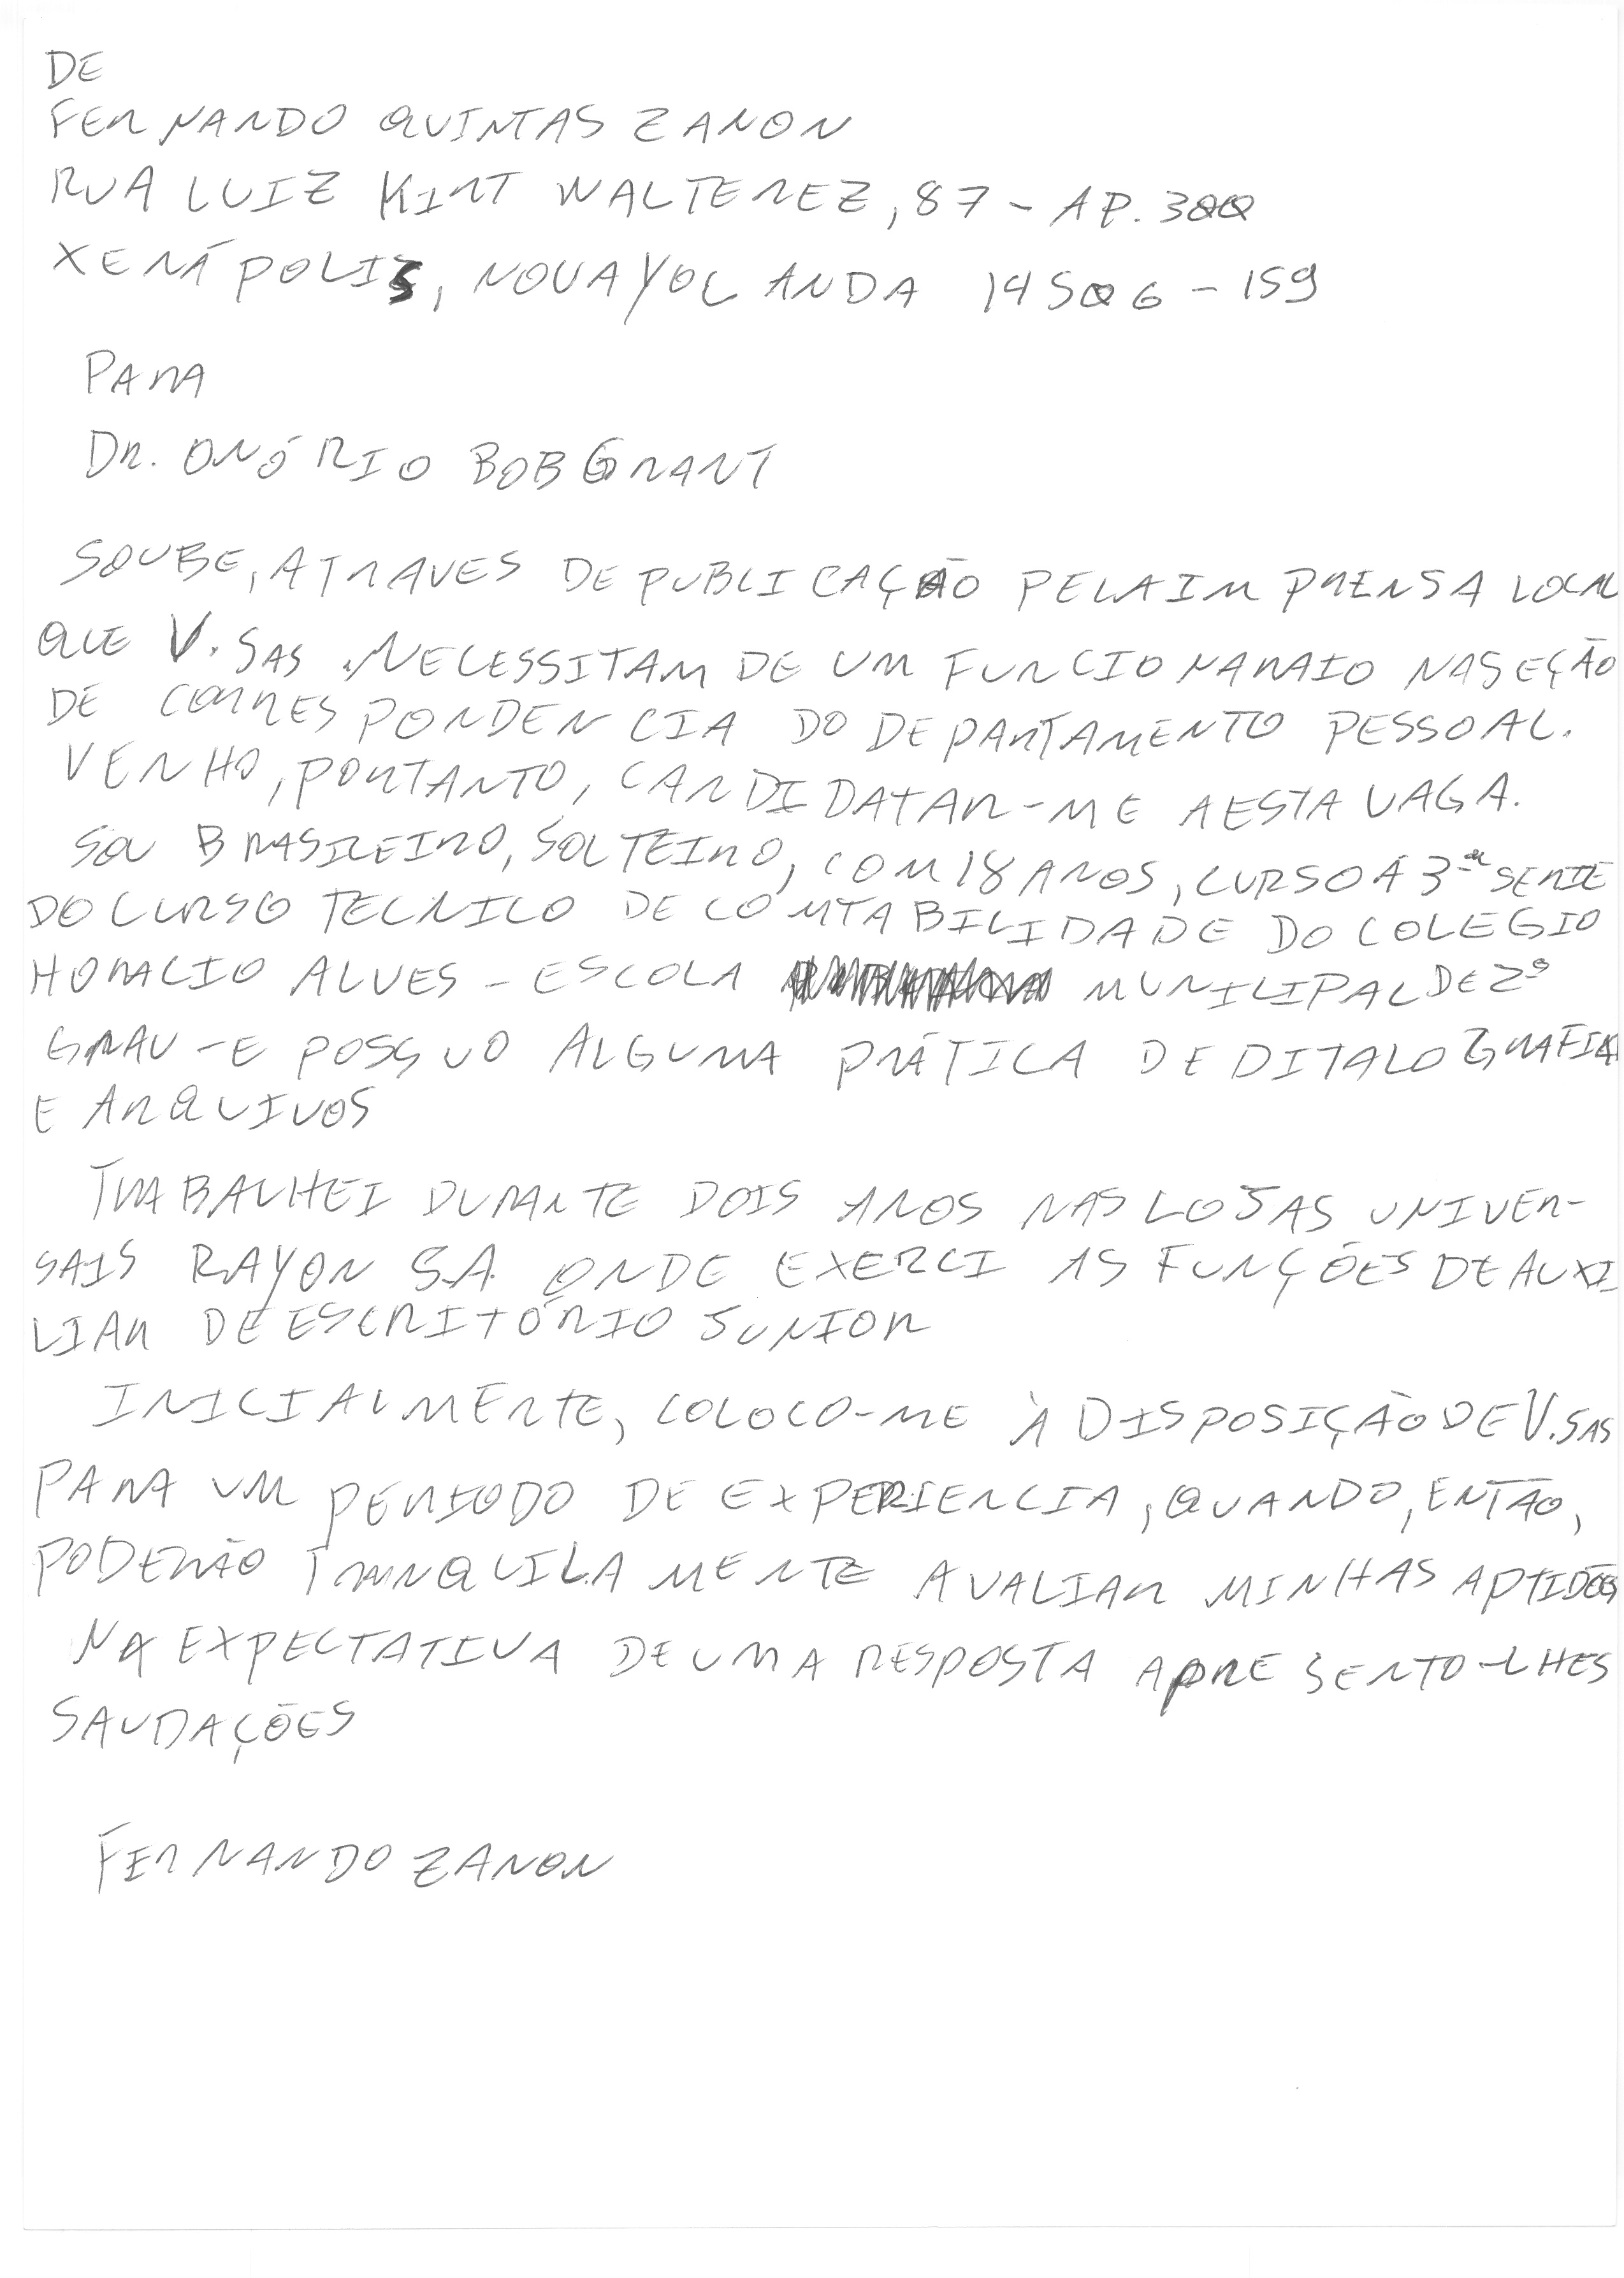 DE
FERNANDO QUINTAS ZANON
RUA LUIZ KIRT WALTEREZ, 87 - AP. 300
XERÁPOLIS, NOVA YOLANDA 14506-159
PARA
DR. ONÓRIO BOB GRANT
SOUBE, ATRAVES DE PUBLICAÇÃO PELA IMPRENSA LOCAL
QUE V. SAS NECESSITAM DE UM FUNCIONARAIO NA SEÇÃO
DE CORRESPONDENCIA DO DEPARTAMENTO PESSOAL.
VENHO, PORTANTO, CANDIDATAR-ME A ESTA VAGA.
SOU BRASILEIRO, SOLTEIRO, COM 18 ANOS, CURSO A 3ª SERIE
DO CURSO TECNICO DE CONTABILIDADE DO COLEGIO
HORACIO ALVES - ESCOLA MUNICIPAL DE 2º
GRAU - E POSSUO ALGUMA PRÁTICA DE DITALOGRAFIA
E ARQUIVOS
TRABALHEI DURANTE DOIS ANOS NAS LOJAS UNIVER-
SAIS RAYON S.A. ONDE EXERCI AS FUNÇÕES DE AUXI_
LIAR DE ESCRITÓRIO JUNIOR
INICIALMENTE, COLOCO-ME À DISPOSIÇÃO DE V. SAS
PARA UM PERIODO DE EXPERIENCIA, QUANDO, ENTÃO,
PODERÃO TRANQUILAMENTE AVALIAR MINHAS APTIDÕES
NA EXPECTATIVA DE UMA RESPOSTA APRESENTO-LHES
SAUDAÇÕES
FERNANDO ZANON